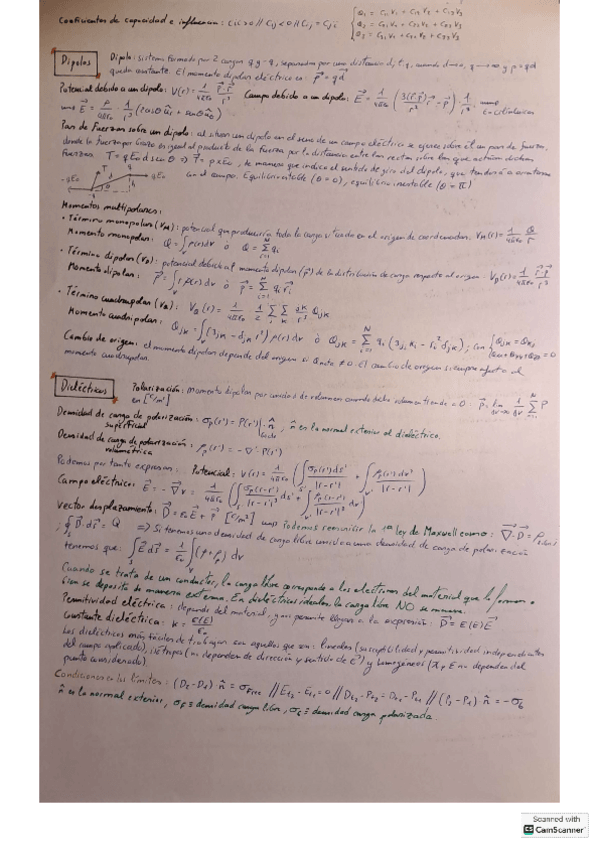 Coeficientes de capacidad e influencia: Cii>0 // Cij<0 // Cij = Cji { Q₁ = C₁₁V₁ + C₁₂V₂ + C₁₃V₃
Q₂ = C₂₁V₁ + C₂₂V₂ + C₂₃V₃
Q₃ = C₃₁V₁ + C₃₂V₂ + C₃₃V₃
Dipolos
Dipolo: sistema formado por 2 cargas q y -q, separadas por una distancia d, t.q. cuando d→0, q→∞ y p=qd
queda constante. El momento dipolar eléctrico es: p⃗ = qd⃗
Potencial debido a un dipolo: V(r) = 1/4πε₀ · p⃗·r⃗/r³ Campo debido a un dipolo: E⃗ = 1/4πε₀ (3(p⃗·r⃗)r⃗/r² − p⃗) · 1/r³
E⃗ = p/4πε₀ · 1/r³ (2cosθ û_r + senθ û_θ)
Par de Fuerzas sobre un dipolo: al situar un dipolo en el seno de un campo eléctrico se ejerce sobre él un par de fuerzas,
donde la fuerza por brazo es igual al producto de la fuerza por la distancia entre las rectas sobre las que actúan dichas
fuerzas. T = qE₀d senθ ⇒ T⃗ = p⃗×E⃗₀, de manera que indica el sentido de giro del dipolo, que tenderá a orientarse
con el campo. Equilibrio estable (θ=0), equilibrio inestable (θ=π)
Momentos multipolares:
• Término monopolar (V_M): potencial que produciría toda la carga situada en el origen de coordenadas. V_M(r) = 1/4πε₀ · Q/r
Momento monopolar: Q = ∫ρ(r)dv ó Q = Σqi
• Término dipolar (V_D): potencial debido al momento dipolar (p⃗) de la distribución de carga respecto al origen. V_D(r) = 1/4πε₀ · r⃗·p⃗/r³
Momento dipolar: p⃗ = ∫r⃗ρ(r)dv ó p⃗ = Σqi r⃗i
• Término cuadrupolar (V_Q): V_Q(r) = 1/4πε₀ · 1/2 ΣΣ
Momento cuadrupolar: Qjk
Cambio de origen: el momento dipolar depende del origen si Q ≠ 0. El cambio de origen siempre afecta al
momento cuadrupolar.
Dieléctricos
Polarización: momento dipolar por unidad de volumen cuando dicho volumen tiende a 0:
en [C/m²]
Densidad de carga de polarización superficial: σp(r') = P(r')·n̂ ; n̂ es la normal exterior al dieléctrico.
Densidad de carga de polarización volumétrica: ρp(r') = −∇'·P(r')
Podemos por tanto expresar: Potencial: V(r) = 1/4πε₀ (∫σp(r')ds'/|r−r'| + ∫ρp(r')dv'/|r−r'|)
Campo eléctrico: E⃗ = −∇⃗V = 1/4πε₀ (∫σp(r−r')/|r−r'|³ ds' + ∫ρp(r−r')/|r−r'|³ dv')
Vector desplazamiento: D⃗ = ε₀E⃗ + P⃗ [C/m²] Podemos reescribir la 1ª ley de Maxwell como: ∇⃗·D⃗ = ρ
∮D⃗·ds⃗ = Q ⇒ Si tenemos una densidad de carga libre unida a una densidad de carga de polarización
tenemos que: ∫E⃗ds⃗ = 1/ε₀ ∫(ρ+ρp)dv
Cuando se trata de un conductor, la carga libre corresponde a los electrones del material que lo forman o
bien se deposita de manera externa. En dieléctricos ideales, la carga libre NO se mueve.
Permitividad eléctrica: depende del material, y nos permite llegar a la expresión: D⃗ = ε(E)E⃗
Constante dieléctrica: κ = ε(E)/ε₀
Los dieléctricos más fáciles de trabajar son aquellos que son: lineales (susceptibilidad y permitividad independientes
del campo aplicado), isótropos (no dependen de dirección y sentido de E⃗) y homogéneos (χ y ε no dependen del
punto considerado)
Condiciones en los límites: (D₂−D₁)·n̂ = σ // Et₂−Et₁=0 // Dt₂−Pt₂ = Dt₁−Pt₁ // (P₂−P₁)·n̂ = −σ_b
n̂ es la normal exterior, σ_F ≡ densidad carga libre, σ_b ≡ densidad carga polarizada.
Scanned with
CS CamScanner